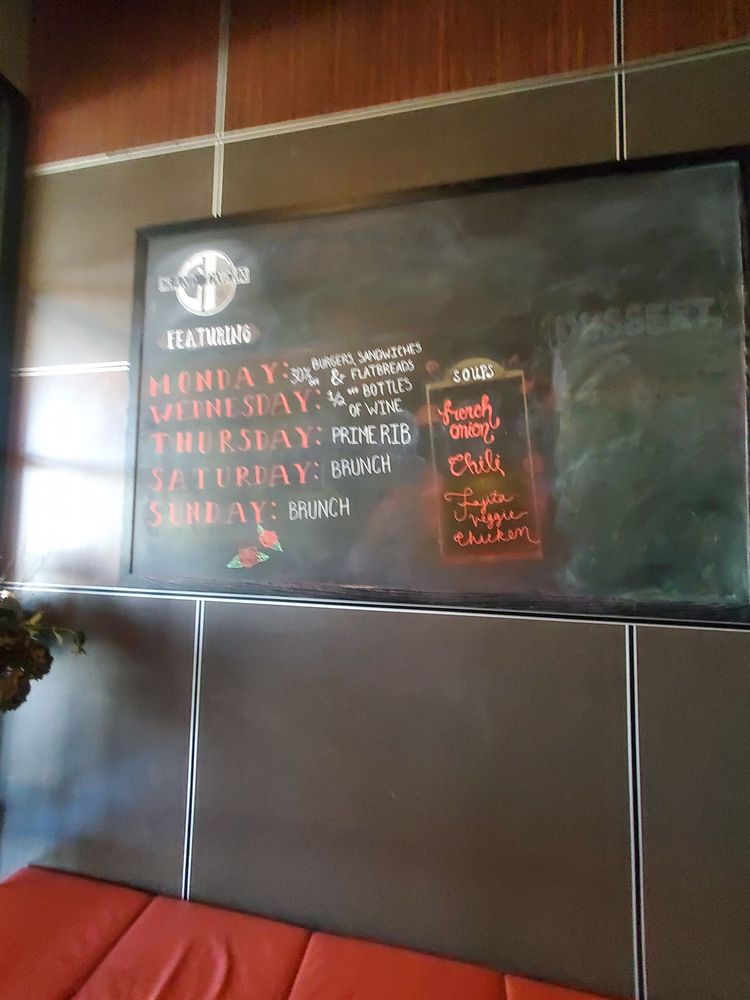 FEATURING
MONDAY: 30% OFF BURGERS, SANDWICHES
& FLATBREADS
WEDNESDAY: 1/2 OFF BOTTLES
OF WINE
THURSDAY: PRIME RIB
SATURDAY: BRUNCH
SUNDAY: BRUNCH
SOUPS
French
onion
Chili
Fajita
Veggie
Chicken
DESSERT